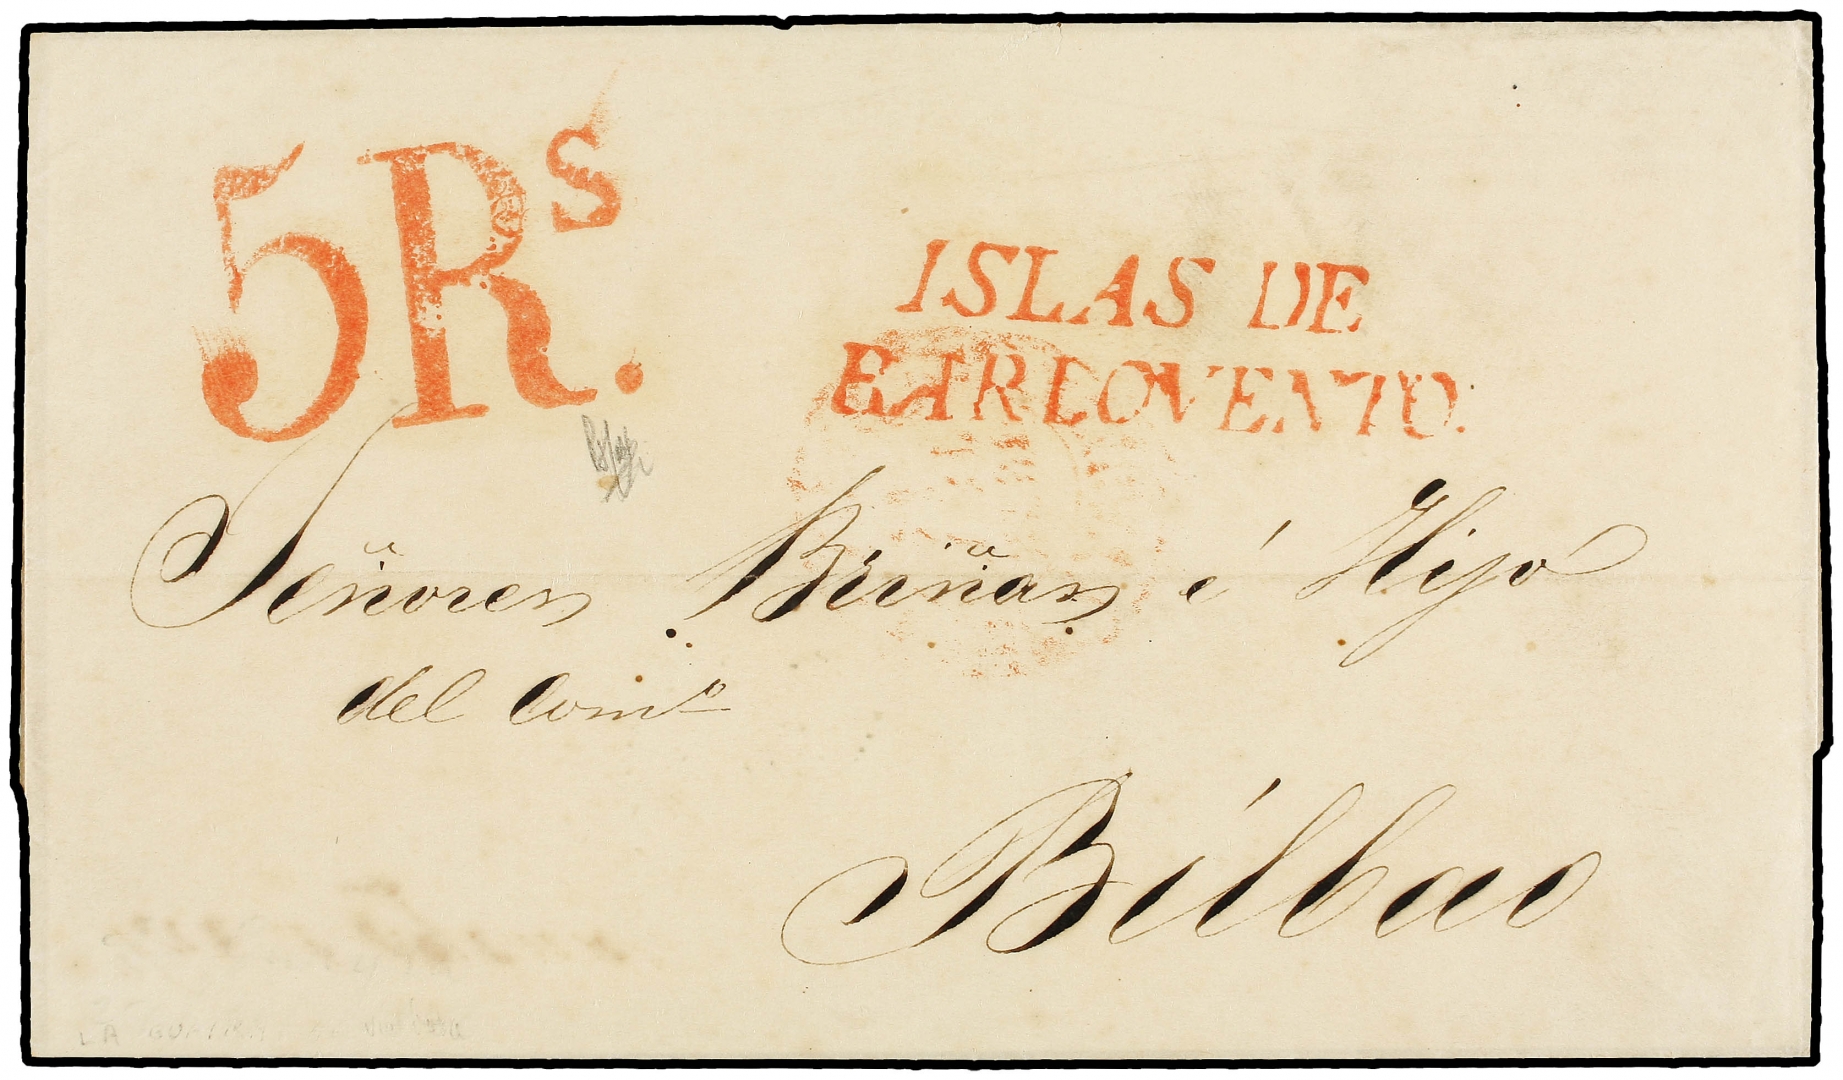 5Rs.
ISLAS DE
BARLOVENTO.
Señores Briñas é Hijo
del Comº
Bilbao
LA